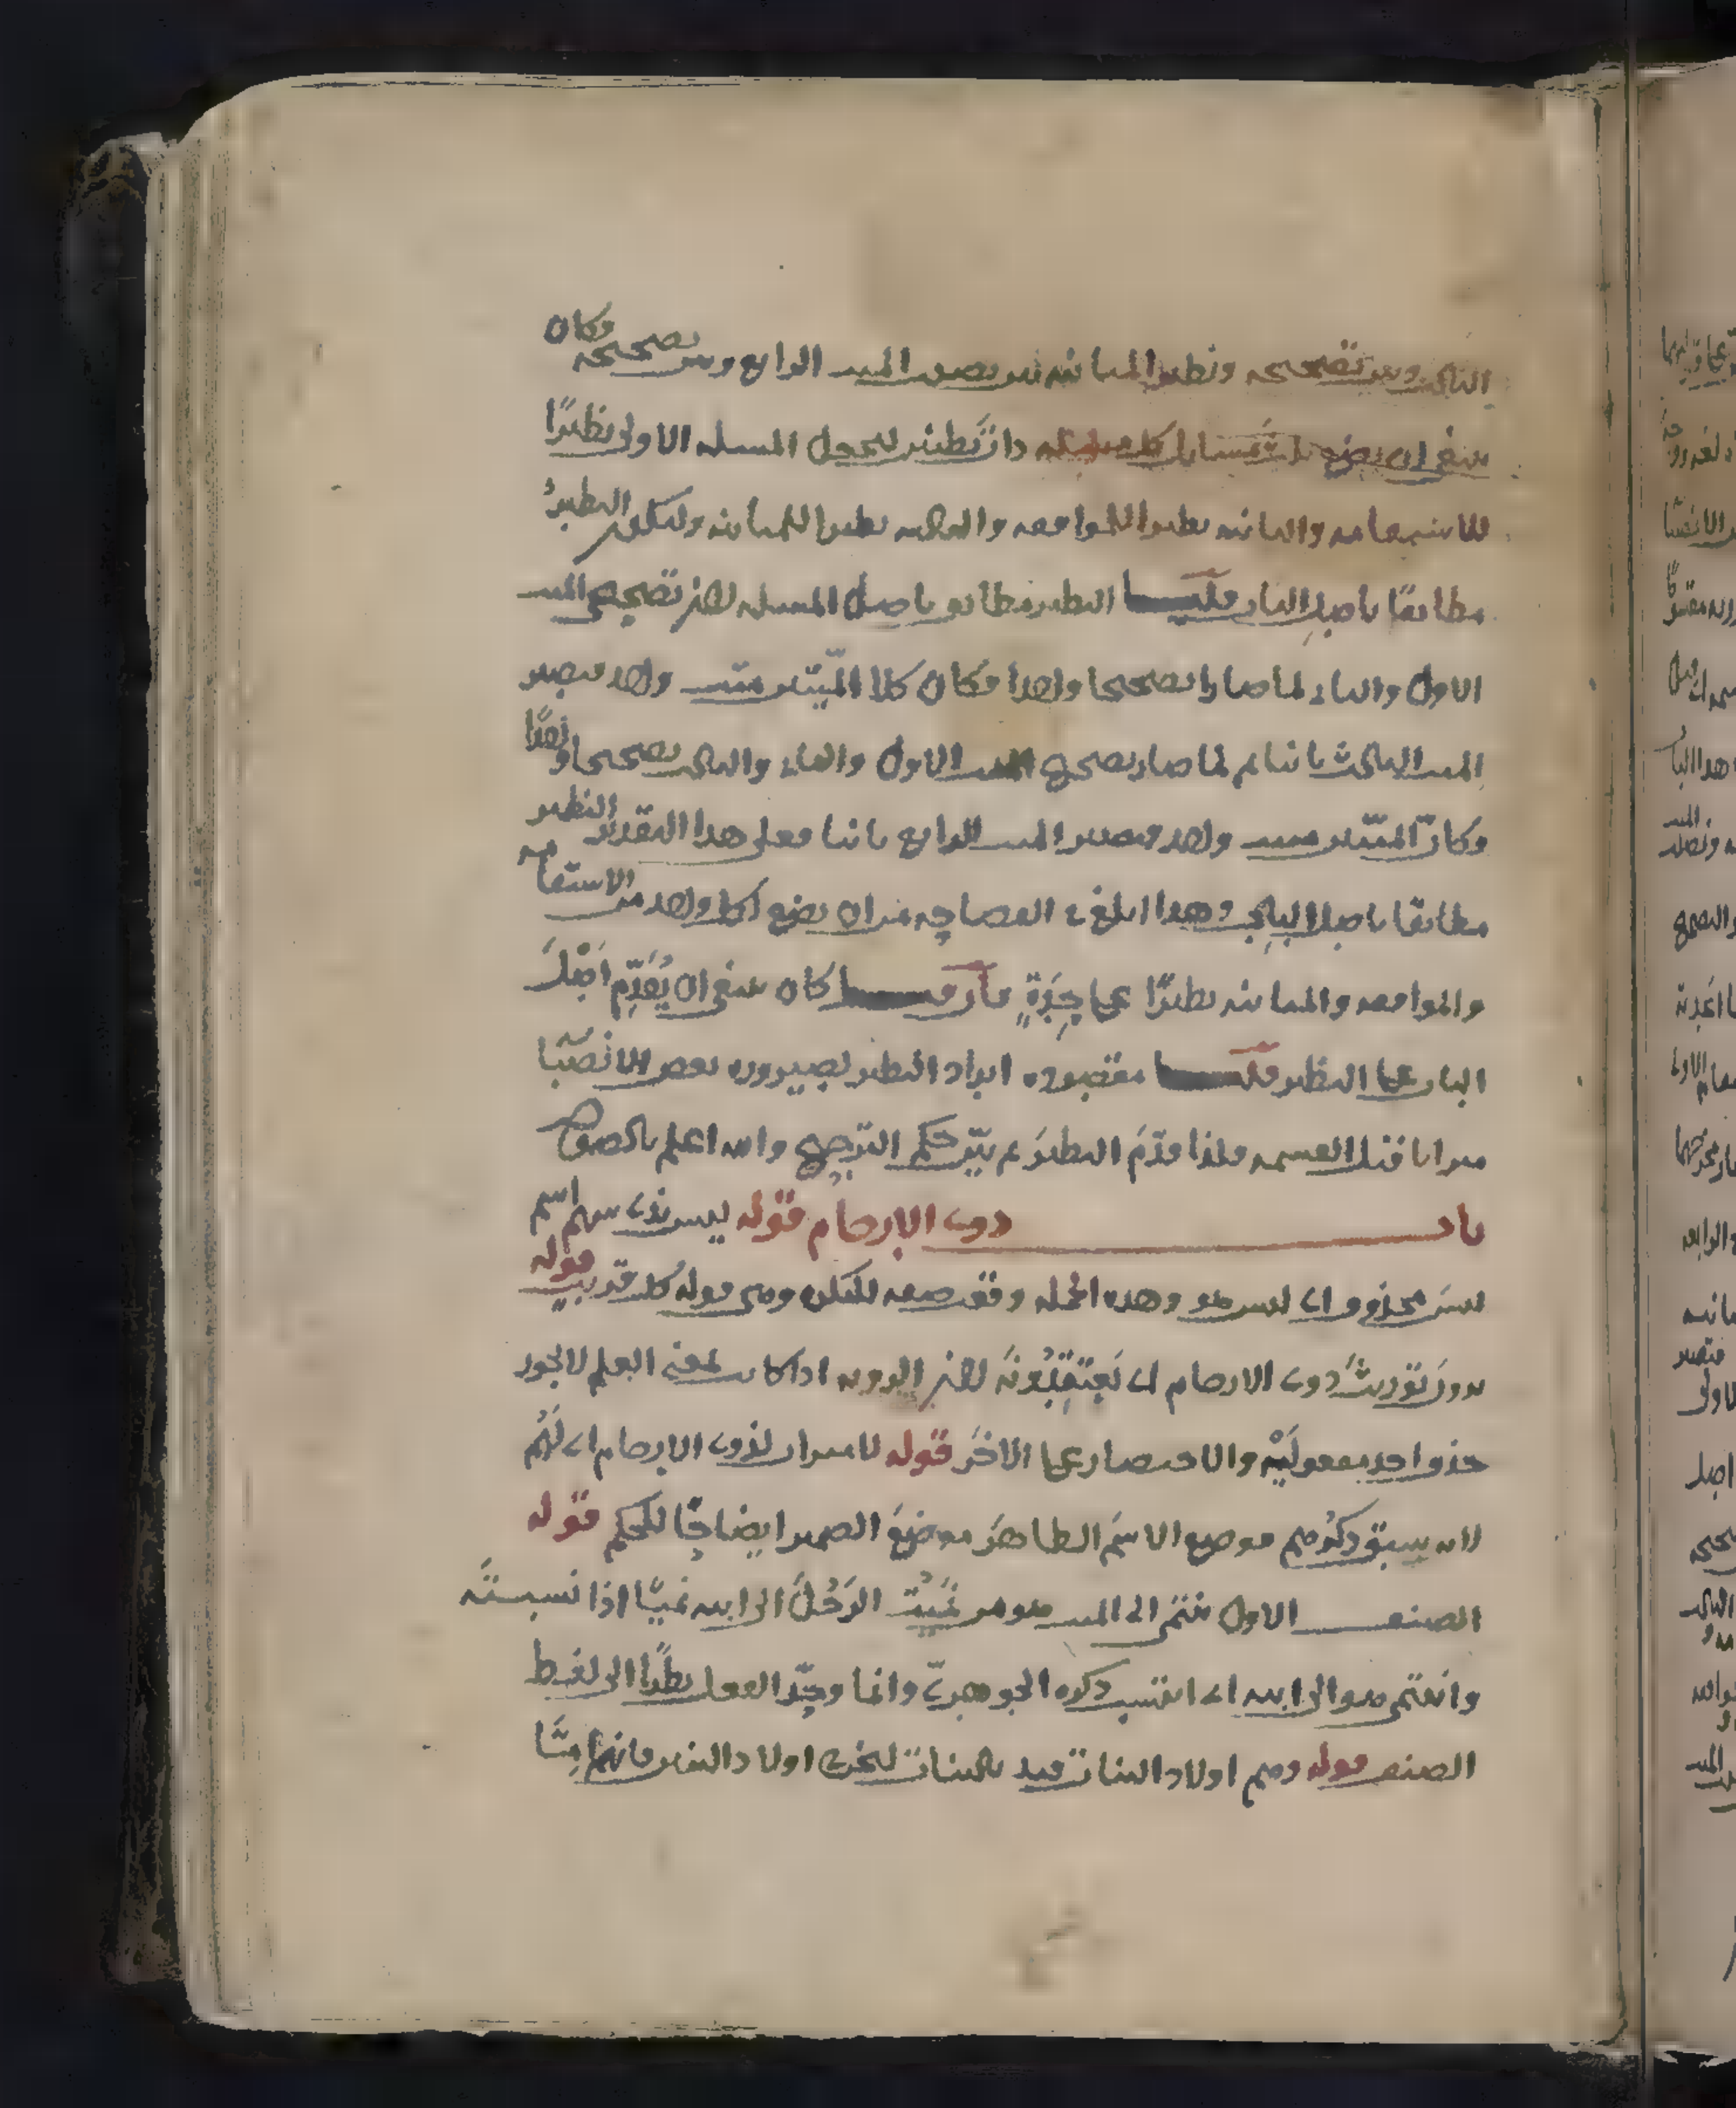 الثالث وبين تصحيحه ونظير المباينة بين نصيب الميت الرابع وبين تصحيحه وكان
ينبغي ان يضع ثلاث مسايل كل مسئلة ذات نظير ليجعل المسئلة الاولى نظيرًا
للاستقامة والثانية نظيرا للموافقة والثالثة نظيرا للمباينة وليكون النظيرُ
مطابقًا باصل الباب قلنا النظير مطابق باصل المسئلة لان تصحيح الميت
الاول والثاني لما صارا تصحيحا واحدا فكان كلا الميّتين ميت واحد فيصير
الميت الثالث ثانيا ثم لما صار تصحيح الميت الاول والثاني والثالث تصحيحا واحدًا
وكانّ الميّتين ميت واحد فيصير الميت الرابع ثانيا فعلى هذا التقدير النظير
مطابقا باصل الباب وهذا ابلغ في الفصاحة من ان يضع لكل واحد من الاستقامة
والموافقة والمباينة نظيرًا على حِدَةٍ فان قيل كان ينبغي ان يُقَدِّم اَصْلَ
الباب على النظير قلنا مقصوده ايراد النظير لصيرورة بعض الانصبا
ميراثا قبل القسمة فلذا قدّمَ النظيرَ ثم بيّن حكم الترجيح والله اعلم بالصواب
باب ذوي الارحام قوله ليس بذي سهم اسم
ليس محذوف اي ليس هو وهذه الجملة وقعت صفة للنكرة وهي قوله كل قريب قوله
يرون توريثَ ذوي الارحام اي يَعتَقِدُونَهُ لان الروية اذا كانت بمعنى العلم لا يجوز
حذف احد مفعولَيْه والاختصار على الاخَر قوله لا ميراث لذوي الارحام اي لَهُم
لانه سبق ذكرُهم فوضع الاسمَ الظاهرَ موضِعَ الضمير ايضاحًا للحكم قوله
الصنف الاول ينتمي الى الميت هو من نَمَيْتُ الرَجُلَ الى ابيه نميًا اذا نسبتَه
وانتمى هو الى ابيه اي انتسب ذكره الجوهريّ وانما وحّد الفعل نظرًا الى لفظ
الصنف قوله وهم اولاد البنات قيد بالبنات ليخرج اولاد البنين فانهم